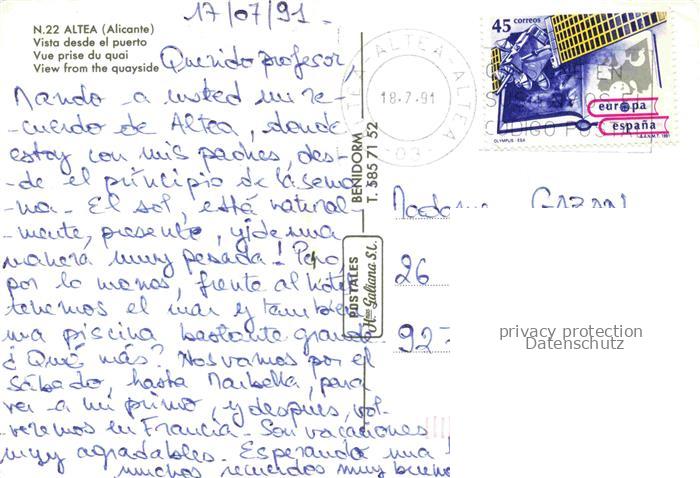 17/07/91.
N.22 ALTEA (Alicante)
Vista desde el puerto
Vue prise du quai
View from the quayside
Querido profesor,
Mando a usted mi re-
-cuerdo de Altea, donde
estoy con mis padres, des-
-de el principio de la sema
-na. El sol, está natural-
-mente, presente, y ¡de una
manera muy pesada! Pero
por lo menos, frente al hotel
tenemos el mar y también
una piscina bastante grande.
¿Qué más? Nos vamos por el
sábado, hasta Marbella, para
ver a mi primo, y después, vol-
-veremos en Francia. Son vacaciones
muy agradables. Esperando una
muchos recuerdos muy buenos
BENIDORM
T. 585 71 52
POSTALES
Hnos Galiana S.L.
ALTEA-ALTEA
18-7-91
03
45 correos
europa
españa
OLYMPUS-ESA
F.N.M.T. 1991
CODIGO POSTAL
Madame GAZAN
26
92
privacy protection
Datenschutz